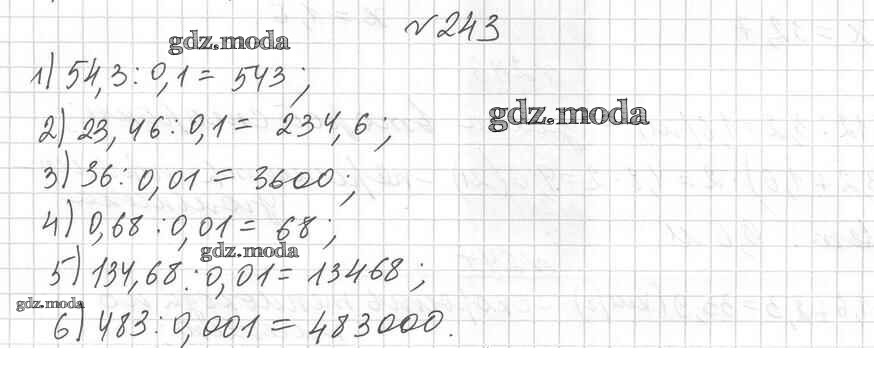 №243
gdz.moda
1) 54,3 : 0,1 = 543;
gdz.moda
2) 23,46 : 0,1 = 234,6;
3) 36 : 0,01 = 3600;
4) 0,68 : 0,01 = 68;
gdz.moda
5) 134,68 : 0,01 = 13468;
gdz.moda
6) 483 : 0,001 = 483000.